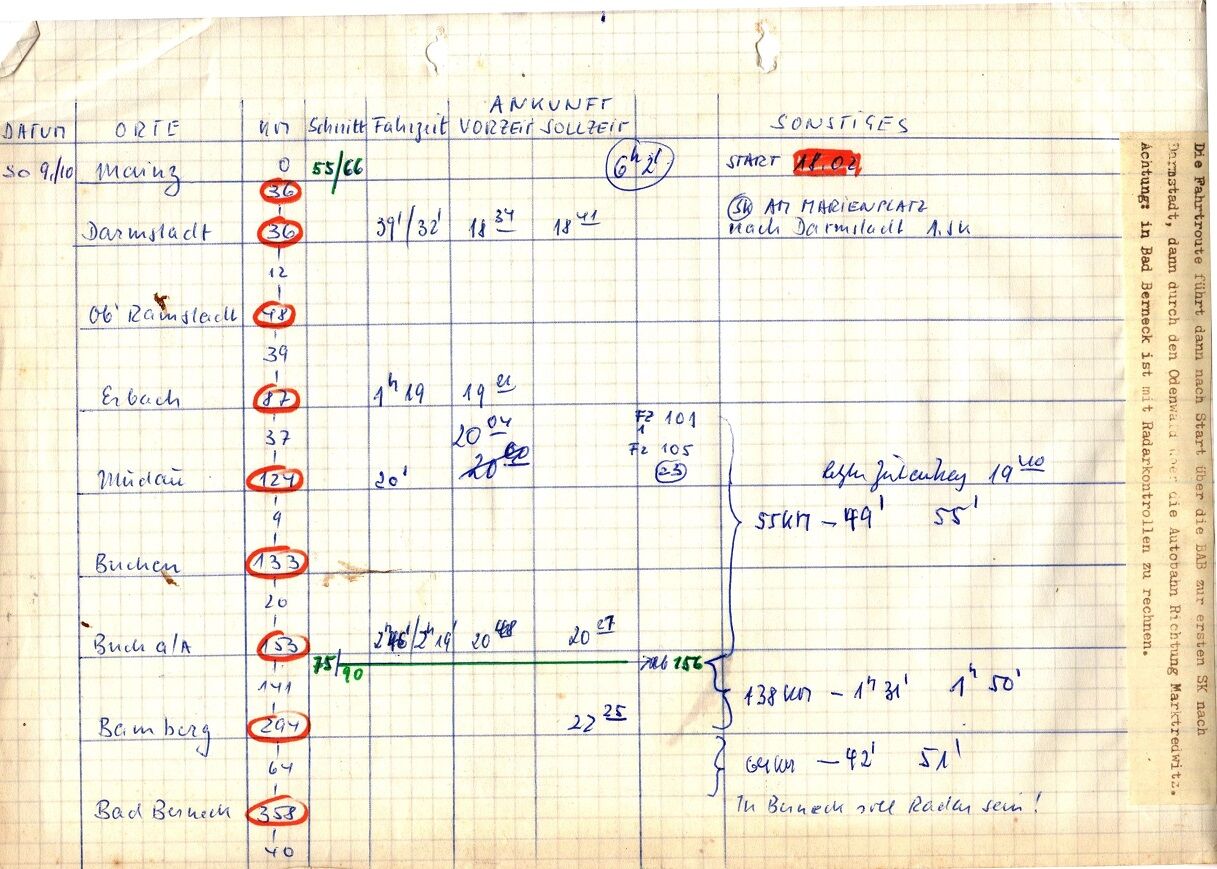 ANKUNFT
DATUM ORTE KM Schnitt Fahrzeit VORZEIT SOLLZEIT SONSTIGES
SO 9./10 Mainz 0 55/66 6h 2' START 18.02
36
SK AM MARIENPLATZ
Darmstadt 36 39'/32' 18 34 18 41 nach Darmstadt 1. SK
12
Ob' Ramstadt 48
39
Erbach 87 1h 19 19 21
37 20 04 Fz 101
1
Fz 105
Mudau 124 20' 20 00 23 19 40
9 55KM - 49' 55'
Buchen 133
20
Buch a/A 153 2h 46'/2h 19' 20 48 20 27
75/90 ab 156
141 138KM - 1h 31' 1h 50'
Bamberg 294 22 25
64 64KM - 42' 51'
Bad Berneck 358 In Berneck soll Radar sein!
40
Die Fahrtroute führt dann nach Start über die BAB zur ersten SK nach
Darmstadt, dann durch den Odenwald über die Autobahn Richtung Marktredwitz.
Achtung: in Bad Berneck ist mit Radarkontrollen zu rechnen.